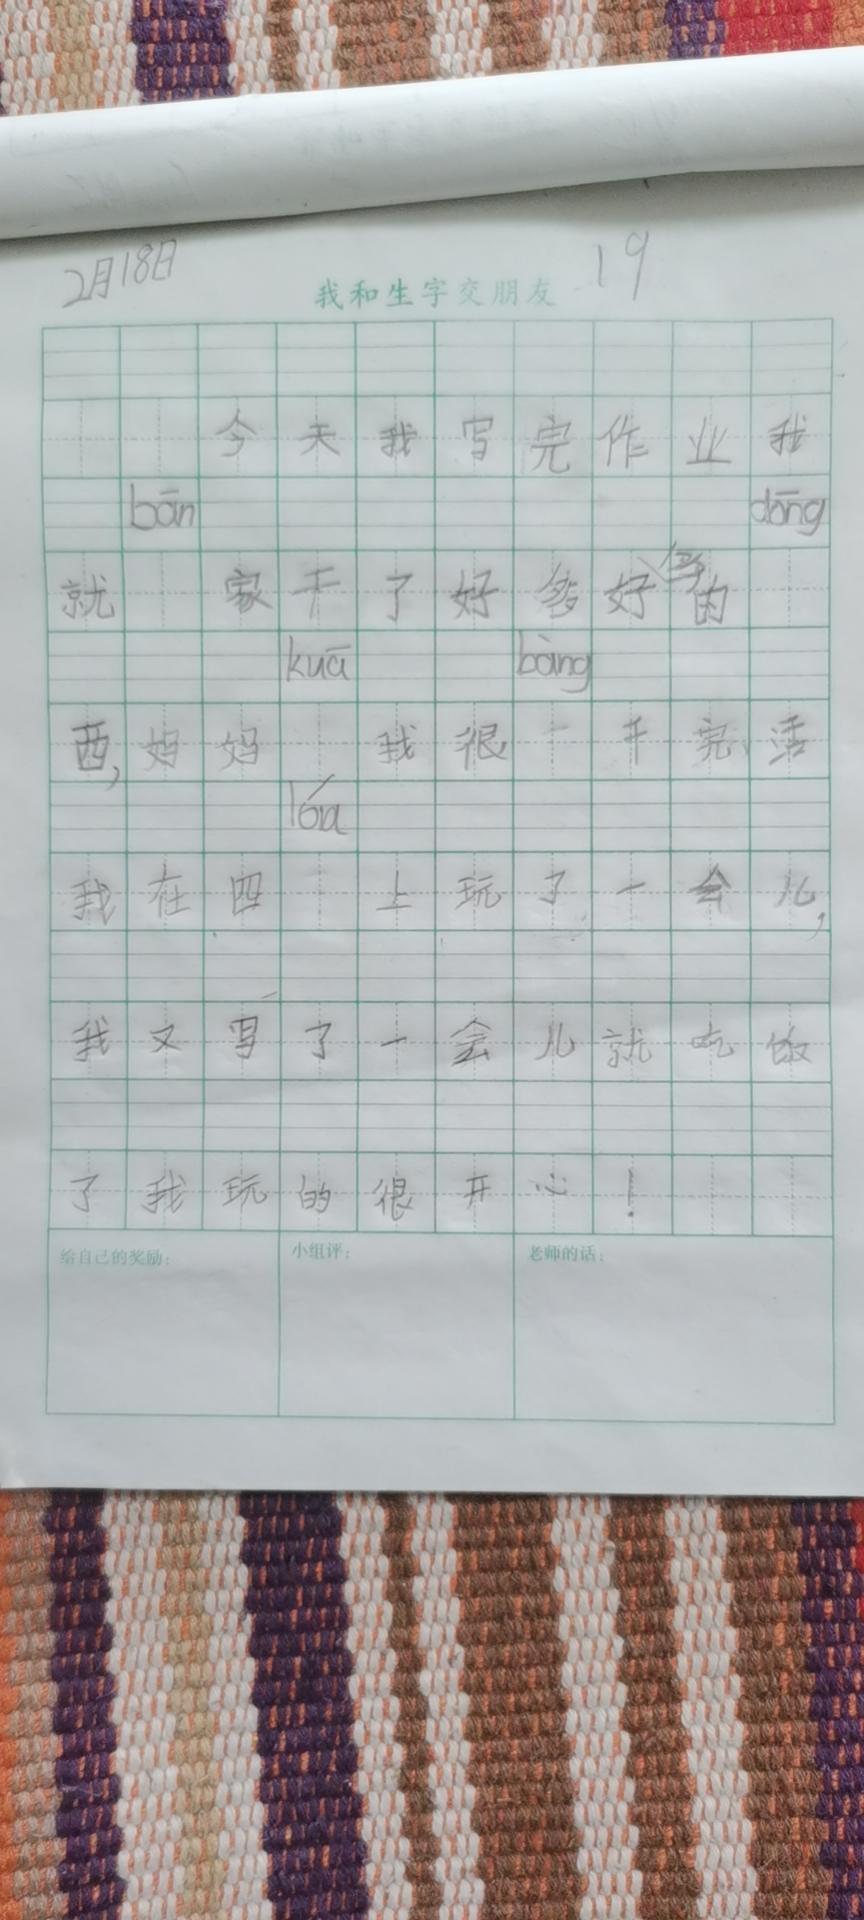 2月18日
我和生字交朋友 19
今天我写完作业我
bān dōng
就 家干了好多好多的
kuā bàng
酉,妈妈 我很一干完、活
lóu
我在四 上玩了一会儿,
我又写了一会儿就吃饭
了我玩的很开心!
给自己的奖励: 小组评: 老师的话: